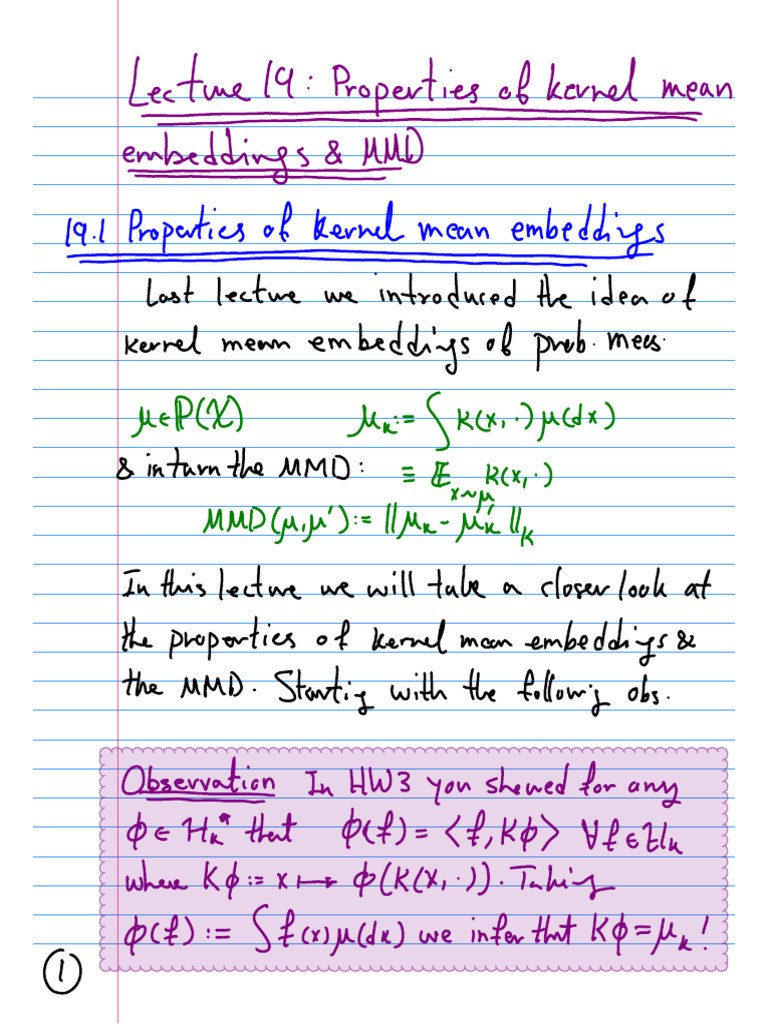 Lecture 19: Properties of kernel mean
embeddings & MMD
19.1 Properties of kernel mean embeddings
Last lecture we introduced the idea of
kernel mean embeddings of prob. mees.
μ∈ℙ(X) μ_k := ∫ K(x, ·) μ(dx)
& in turn the MMD: ≡ 𝔼_{x∼μ} K(x, ·)
MMD(μ, μ') := ||μ_k - μ'_k||_K
In this lecture we will take a closer look at
the properties of kernel mean embeddings &
the MMD. Starting with the following obs.
Observation In HW3 you showed for any
φ ∈ H_k* that φ(f) = ⟨f, Kφ⟩ ∀f∈H_k
where Kφ := x ↦ φ(K(x, ·)). Taking
φ(f) := ∫ f(x) μ(dx) we infer that Kφ = μ_k!
1